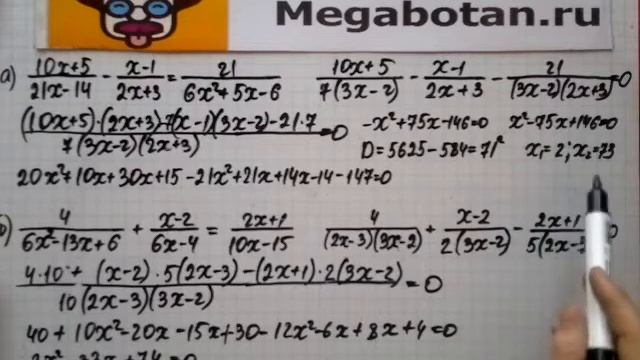 Megabotan.ru
а) (10x+5)/(21x-14) - (x-1)/(2x+3) = 21/(6x²+5x-6)    (10x+5)/(7(3x-2)) - (x-1)/(2x+3) - 21/((3x-2)(2x+3)) = 0
((10x+5)·(2x+3)-7(x-1)(3x-2)-21·7)/(7(3x-2)(2x+3)) = 0    -x²+75x-146=0    x²-75x+146=0
D=5625-584=71²    x₁=2; x₂=73
20x²+10x+30x+15-21x²+21x+14x-14-147=0
б) 4/(6x²-13x+6) + (x-2)/(6x-4) = (2x+1)/(10x-15)    4/((2x-3)(3x-2)) + (x-2)/(2(3x-2)) - (2x+1)/(5(2x-3
(4·10+(x-2)·5(2x-3)-(2x+1)·2(3x-2))/(10(2x-3)(3x-2)) = 0
40+10x²-20x-15x+30-12x²-6x+8x+4=0